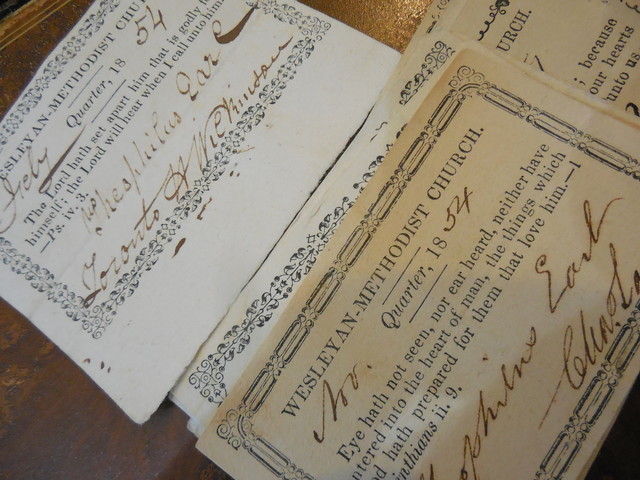 WESLEYAN-METHODIST CHU
July Quarter, 18 54
The Lord hath set apart him that is godly f
himself; the Lord will hear when I call unto him
—Ps. iv. 3.
Theophilus Earl
Toronto
WESLEYAN-METHODIST CHURCH.
Nov. Quarter, 18 54
Eye hath not seen, nor ear heard, neither have
ntered into the heart of man, the things which
od hath prepared for them that love him.—1
rinthians ii. 9.
ophilus Earl
URCH.
; because
our hearts
unto us